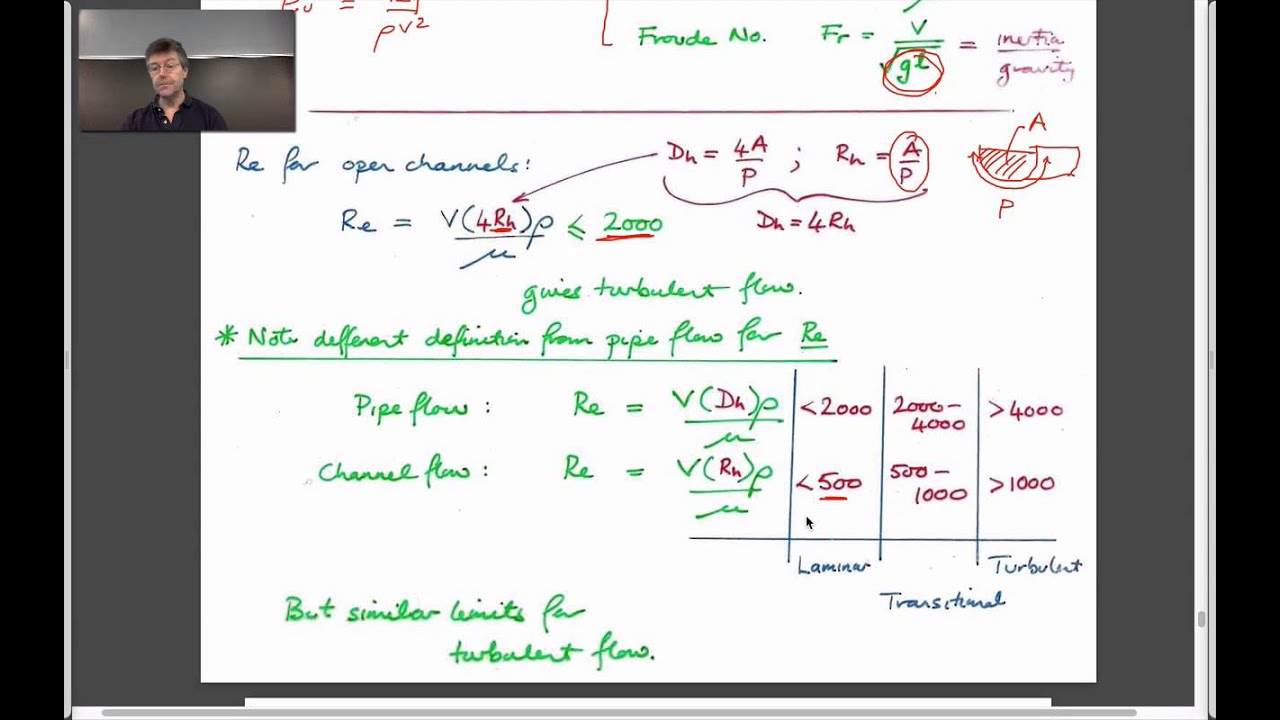 ρV²
Froude No. Fr = V/√gt = inertia/gravity
A
P
Re for open channels: Dh = 4A/P ; Rh = A/P
Re = V(4Rh)ρ/μ ≤ 2000 Dh = 4Rh
gives turbulent flow.
* Note different definition from pipe flow for Re
Pipe flow : Re = V(Dh)ρ/μ <2000 2000–4000 >4000
Channel flow : Re = V(Rh)ρ/μ <500 500–1000 >1000
Laminar Transitional Turbulent
But similar limits for
turbulent flow.